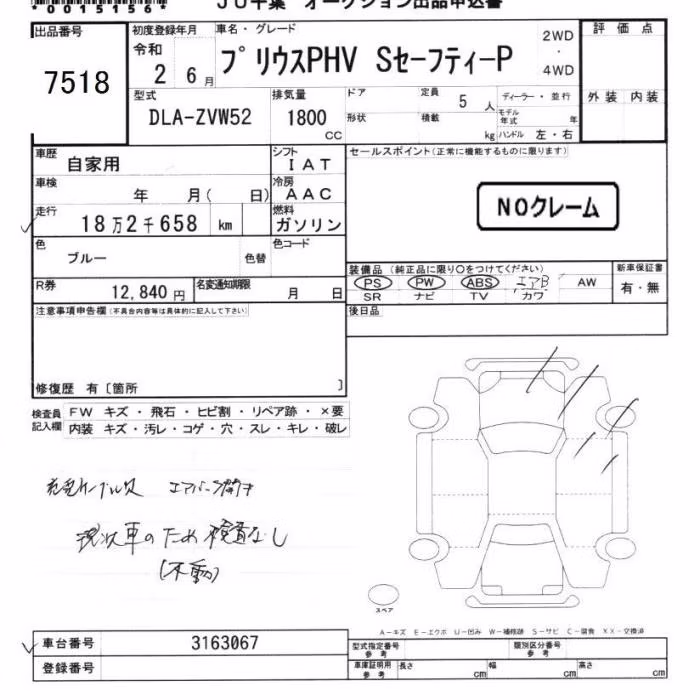 *0015156*
JU千葉 オークション出品申込書
出品番号 7518
初度登録年月 令和 2 6月
車名・グレード プリウスPHV SセーフティーP
2WD ・ 4WD
評価点
外装 内装
型式 DLA-ZVW52
排気量 1800 CC
ドア 定員 5 人
形状 積載 kg
ディーラー・並行
モデル年式 年
ハンドル 左・右
車歴 自家用
シフト IAT
車検 年 月( 日)
冷房 AAC
走行 18万2千658 km
燃料 ガソリン
色 ブルー 色替
色コード
R券 12,840 円
名変通知期限 月 日
セールスポイント(正常に機能するものに限ります)
NOクレーム
装備品(純正品に限り○をつけてください)
PS PW ABS エアB AW
SR ナビ TV カワ
新車保証書 有・無
後日品
注意事項申告欄(不具合内容等は具体的に記入して下さい)
修復歴 有〔箇所 〕
検査員記入欄
FW キズ・飛石・ヒビ割・リペア跡・×要
内装 キズ・汚レ・コゲ・穴・スレ・キレ・破レ
充電ケーブル欠 エアバッグ開き
現状車のため検査なし
(不動)
スペア
A-キズ E-エクボ U-凹み W-補修跡 S-サビ C-腐食 XX-交換済
車台番号 3163067
登録番号
型式指定番号 参考
類別区分番号 参考
車庫証明用 参考 長さ cm 幅 cm 高さ cm